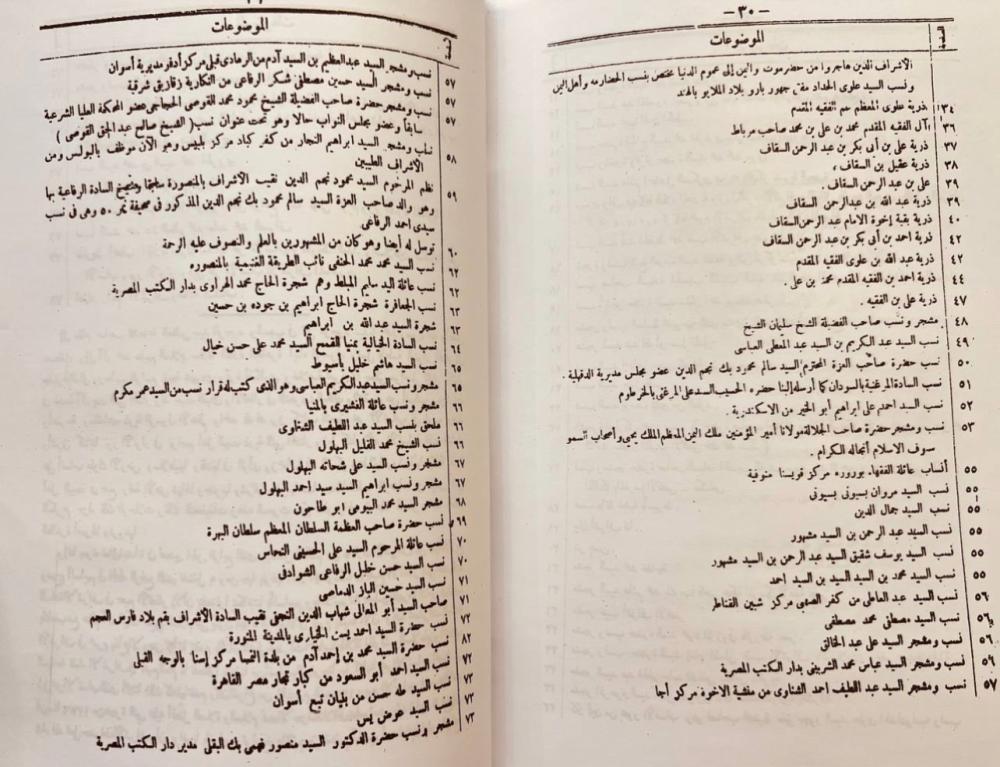 — ٣٠ —
الموضوعات
الصفحة
الأشراف الذين هاجروا من حضرموت واليمن إلى عموم الدنيا مختص بنسب الحضارمه وأهل اليمن
ونسب السيد علوى الحداد مفتى جهور بارو بلاد الملايو بالهند
٣٤ ذرية علوى المعظم عم الفقيه المقدم
٣٦ آل الفقيه المقدم محمد بن على بن محمد صاحب مرباط
٣٧ ذرية على بن أبى بكر بن عبد الرحمن السقاف
٣٨ ذرية عقيل بن السقاف
٣٩ على بن عبد الرحمن السقاف .
٣٩ ذرية عبد الله بن عبدالرحمن السقاف
٤٠ ذرية بقية إخوة الامام عبد الرحمن السقاف
٤٢ ذرية احمد بن أبى بكر بن عبد الرحمن السقاف
٤٢ ذرية عبد الله بن علوى الفقيه المقدم
٤٤ ذرية احمد بن الفقيه المقدم محمد بن على .
٤٧ ذرية على بن الفقيه .
٤٨ مشجر ونسب صاحب الفضيلة الشيخ سليمان الشيخ
٤٩ نسب السيد عبد الكريم بن السيد عبد المعطى العباسى
٥٠ نسب حضرة صاحب العزة المحترم السيد سالم محمود بك نجم الدين عضو مجلس مديرية الدقهلية .
٥١ نسب السادة المرغنية بالسودان كما أرسله إلينا حضره الحسيب السيد على المرغنى بالخرطوم
٥٢ نسب السيد احمد على ابراهيم أبو الخير من الاسكندرية .
٥٣ نسب ومشجر حضرة صاحب الجلالة مولانا أمير المؤمنين ملك اليمن المعظم الملك يحيى وأصحاب السمو
سيوف الاسلام أنجاله الكرام .
٥٥ أنساب عائلة الفقهاء بوروره مركز قويسنا منوفية
٥٥ نسب السيد مروان بسيونى بسيونى
٥٥ نسب السيد جمال الدين
٥٥ نسب السيد عبد الرحمن بن السيد مشهور
٥٥ نسب السيد يوسف شفيق السيد عبد الرحمن بن السيد مشهور
٥٥ نسب السيد محمد بن السيد السيد بن السيد احمد
٥٦ نسب السيد عبد العاطى من كفر الصهبى مركز شبين القناطر
٥٦ نسب السيد مصطفى محمد مصطفى
٥٦ نسب ومشجر السيد على عبد الخالق
٥٦ نسب ومشجر السيد عباس محمد الشربينى بدار الكتب المصرية
٥٧ نسب ومشجر السيد عبد اللطيف احمد الشناوى من منشية الاخوة مركز أجا
الموضوعات
٥٧ نسب ومشجر السيد عبد العظيم بن السيد آدم من الرمادى قبلى مركز أدفو مديرية أسوان
٥٧ نسب ومشجر السيد حسين مصطفى شكر الرفاعى من النكارية زقازيق شرقية
٥٧ نسب ومشجر حضرة صاحب الفضيلة الشيخ محمود محمد القوصى الحجاجى عضو المحكمة العليا الشرعية
سابقا وعضو بمجلس النواب حالا وهو تحت عنوان نسب ( الشيخ صالح عبد الحق القوصى )
٥٨ نسب ومشجر السيد ابراهيم النجار من كفر كباد مركز بلبيس وهو الآن موظف بالبوليس ومن
الأشراف الطيبين
٥٩ نظم المرحوم السيد محمود نجم الدين نقيب الأشراف بالمنصورة سابقا وشيخ السادة الرفاعية بها
وهو والد صاحب العزة السيد سالم محمود بك نجم الدين المذكور فى صحيفة نمر ٥٠ وهى فى نسب
سيدى احمد الرفاعى
٦٠ توسل له أيضا وهو كان من المشهورين بالعلم والتصوف عليه الرحمة
٦٢ نسب السيد محمد محمد الحنفى نائب الطريقة القنبعية بالمنصوره
٦٢ نسب عائلة السيد سايم الملط وهم شجرة الحاج محمد الهراوى بدار الكتب المصرية
٦٣ نسب الجعافرة شجرة الحاج ابراهيم بن جوده بن حسين
٦٣ شجرة السيد عبد الله بن ابراهيم
٦٤ نسب السادة الخيالية بمنيا القمح السيد محمد على حسن خيال
٦٥ نسب السيد هاشم خليل بأسيوط
٦٥ مشجر ونسب السيد عبد الكريم العباسى وهو الذى كتب له قرار نسب من السيد عمر مكرم
٦٦ مشجر ونسب عائلة القشيرى بالمنيا
٦٦ ملحق بنسب السيد عبد اللطيف الشناوى
٦٧ نسب الشيخ محمد القليل البهلول
٦٧ مشجر ونسب السيد على شحاته البهلول
٦٧ مشجر ونسب ابراهيم السيد سيد احمد البهلول
٦٨ مشجر السيد محمد البيومى ابو طاحون
٦٩ نسب حضرة صاحب العظمة السلطان المعظم سلطان البرة
٧٠ نسب عائلة المرحوم السيد على الحسينى النحاس
٧٠ نسب السيد حسن خليل الرفاعى الشوادفى
٧١ نسب السيد حسنين الباز الدماصى
٧٢ صاحب السيد أبو المعالى شهاب الدين النجفى نقيب السادة الأشراف بقم بلاد فارس العجم
٨٢ نسب حضرة السيد احمد يسن الخيارى بالمدينة المنورة
٧٢ نسب حضرة السيد محمد بن إحمد آدم من بلدة النمسا مركز إسنا بالوجه القبلى
٧٣ نسب السيد احمد أبو السعود من كبار تجار مصر القاهرة
٧٣ نسب السيد طه حسن من بلبان تبع أسوان
نسب السيد عوض يس
٧٣ مشجر ونسب حضرة الدكتور السيد منصور فهمى بك البقلى مدير دار الكتب المصرية